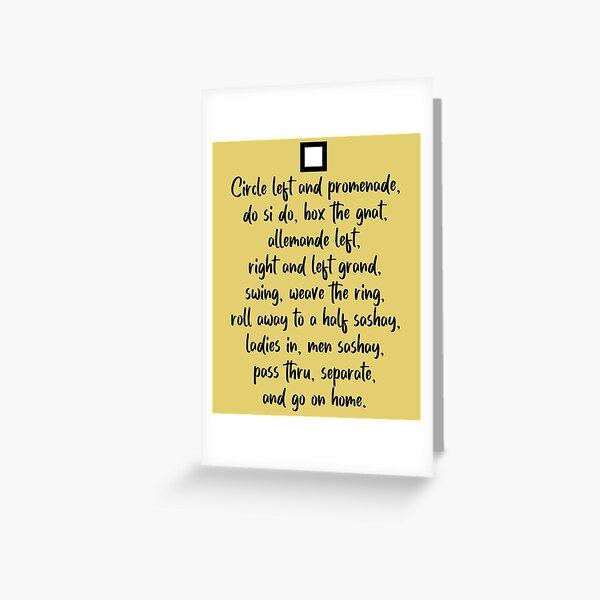 Circle left and promenade,
do si do, box the gnat,
allemande left,
right and left grand,
swing, weave the ring,
roll away to a half sashay,
ladies in, men sashay,
pass thru, separate,
and go on home.